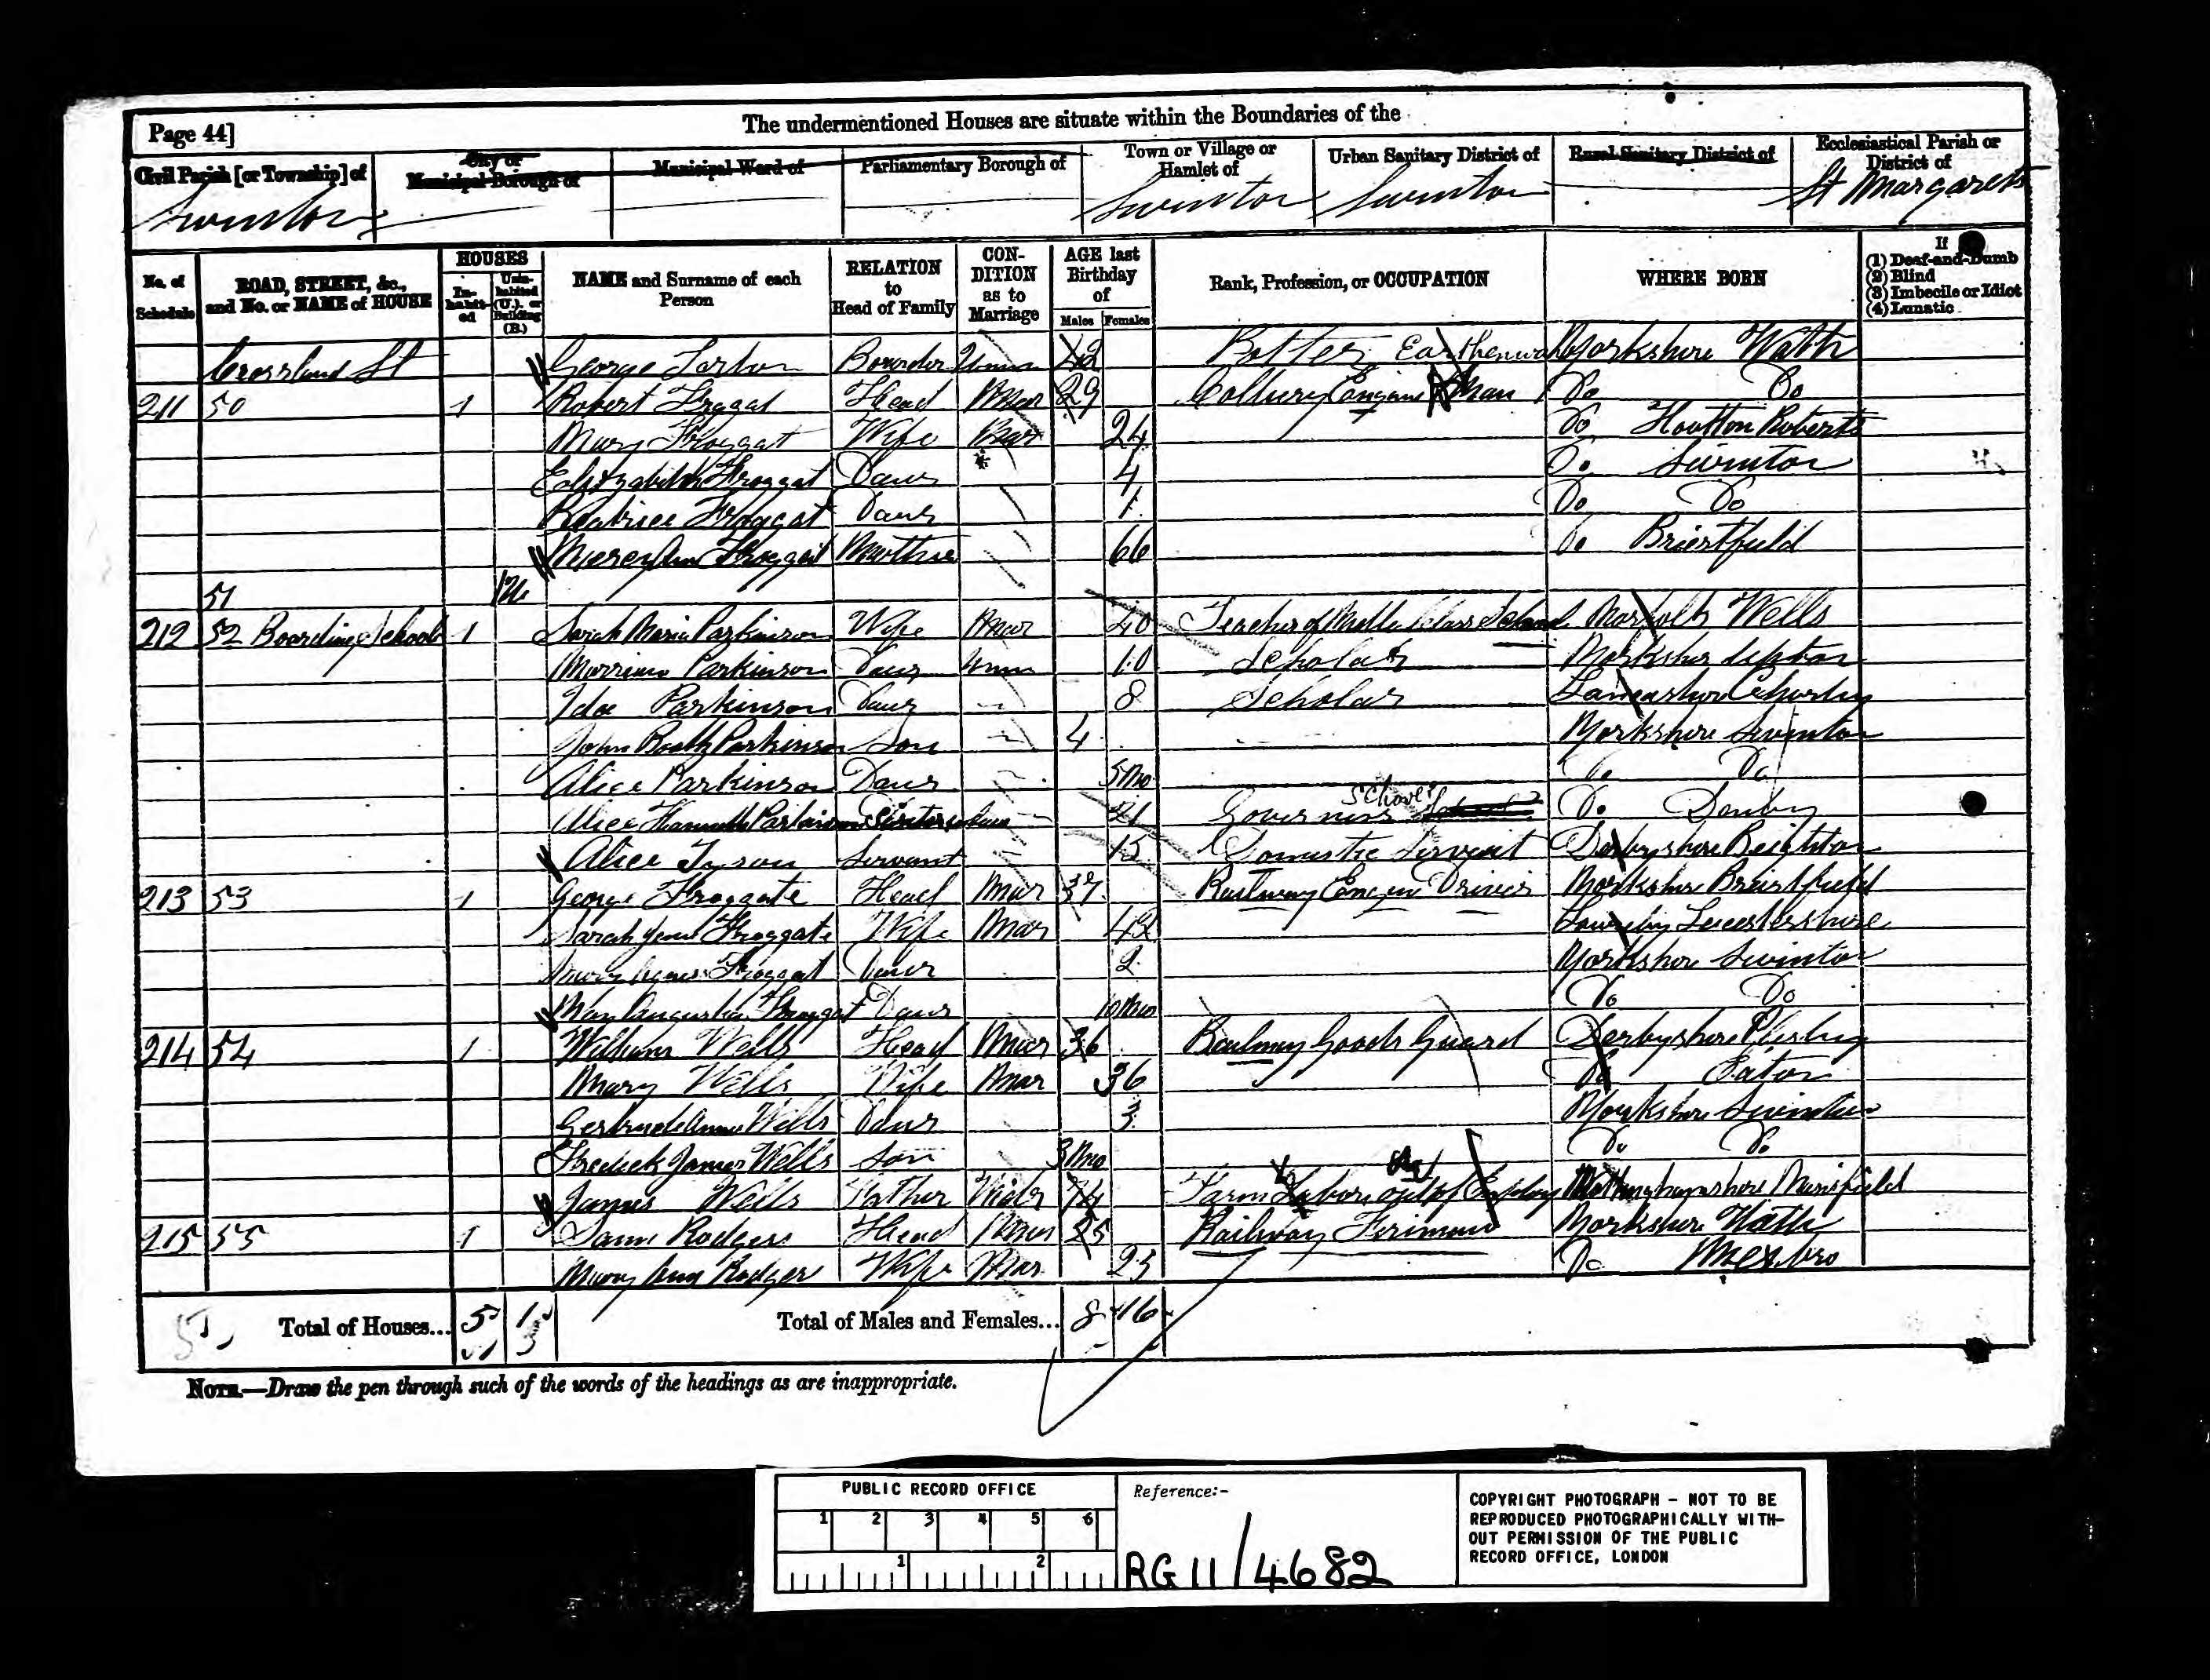 Page 44]
The undermentioned Houses are situate within the Boundaries of the
Civil Parish [or Township] of
City or Municipal Borough of
Municipal Ward of
Parliamentary Borough of
Town or Village or Hamlet of
Urban Sanitary District of
Rural Sanitary District of
Ecclesiastical Parish or District of
Swinton Swinton Swinton St Margarets
No. of Schedule
ROAD, STREET, &c., and No. or NAME of HOUSE
HOUSES
In-habit-ed
Unin-habited (U.), or Building (B.)
NAME and Surname of each Person
RELATION to Head of Family
CON-DITION as to Marriage
AGE last Birthday of
Males Females
Rank, Profession, or OCCUPATION
WHERE BORN
If
(1) Deaf-and-Dumb
(2) Blind
(3) Imbecile or Idiot
(4) Lunatic
Crossland St George Boarder Unm 42 Potter Earthenware Yorkshire Wath
211 50 1 Robert Frogat Head Mar 29 Colliery Engine Man Do Do
Mary Froggat Wife Mar 24 Do Hootton Roberts
Froggat Daur 4 Do Swinton
Beatrice Froggat Daur 1 Do Do
Froggat Mother 66 Do Briestfield
51 1U
212 52 Boarding School 1 Sarah Maria Parkinson Wife Mar 40 Teacher of Middle Class School Norfolk Wells
Parkinson Daur Unm 10 Scholar Yorksher
Ida Parkinson Daur 8 Scholar Lancashire Chorley
John Booth Parkinson Son 4 Yorkshire Swinton
Alice Parkinson Daur 5Mo Do Do
Alice Hannah Parkinson Sister in law 21 Governess School Do Denby
Alice Tyson Servant 15 Domestic Servent Derbyshire Beighton
213 53 1 George Froggate Head Mar 37 Railway Engin Driver Yorkshire Briestfield
Sarah Jane Froggate Wife Mar 42 Leicestershire
Mary Agnes Froggat Daur 2 Yorkshire Swinton
Augusta Froggat Daur 10Mo Do Do
214 54 1 William Wells Head Mar 36 Railway Goods Guard Derbyshire
Mary Wells Wife Mar 36 Do Eaton
Gertrude Annie Wells Daur 3 Yorkshire Swinton
Fredick James Wells Son 3Mo Do Do
James Wells Father Widr 74 Farm Labore out of Employ Nottinghamshire Mansfield
215 55 1 Saml Rodgers Head Mar 25 Railway Firiman Yorkshire Wath
Mary Ann Rodger Wife Mar 23 Do Mexbro
Total of Houses... 5 1 Total of Males and Females... 8 16
NOTE.—Draw the pen through such of the words of the headings as are inappropriate.
PUBLIC RECORD OFFICE
1 2 3 4 5 6
1 2
Reference:-
RG 11/4682
COPYRIGHT PHOTOGRAPH - NOT TO BE
REPRODUCED PHOTOGRAPHICALLY WITH-
OUT PERMISSION OF THE PUBLIC
RECORD OFFICE, LONDON